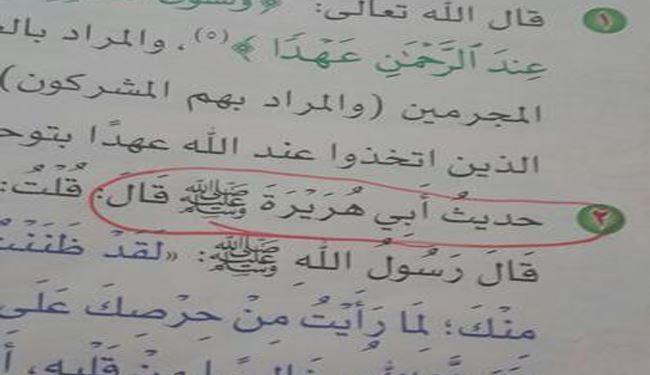 ١ قال الله تعالى:
عِندَ ٱلرَّحْمَٰنِ عَهْدًا ﴾(٥). والمراد
المجرمين (والمراد بهم المشركون)
الذين اتخذوا عند الله عهدًا
٢ حديثُ أَبِي هُرَيْرَةَ ﷺ قَالَ: قُلْتُ:
قَالَ رَسُولُ اللهِ ﷺ: «لَقَدْ ظَنَنْتُ
مِنْكَ؛ لِمَا رَأَيْتُ مِنْ حِرْصِكَ عَلَى
مِنْ قَلْبِهِ،